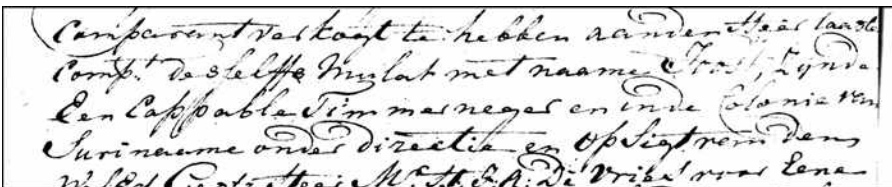 Comparant verkogt te hebben aan den Heer laaste
Comp.t deselffs Mulat met naame Joost, Zynde
Een Cappable Timmerneger en in de Colonie van
Suriname onder directie en opsigt van den
WelEd Heer M.r De Vries voor Eene